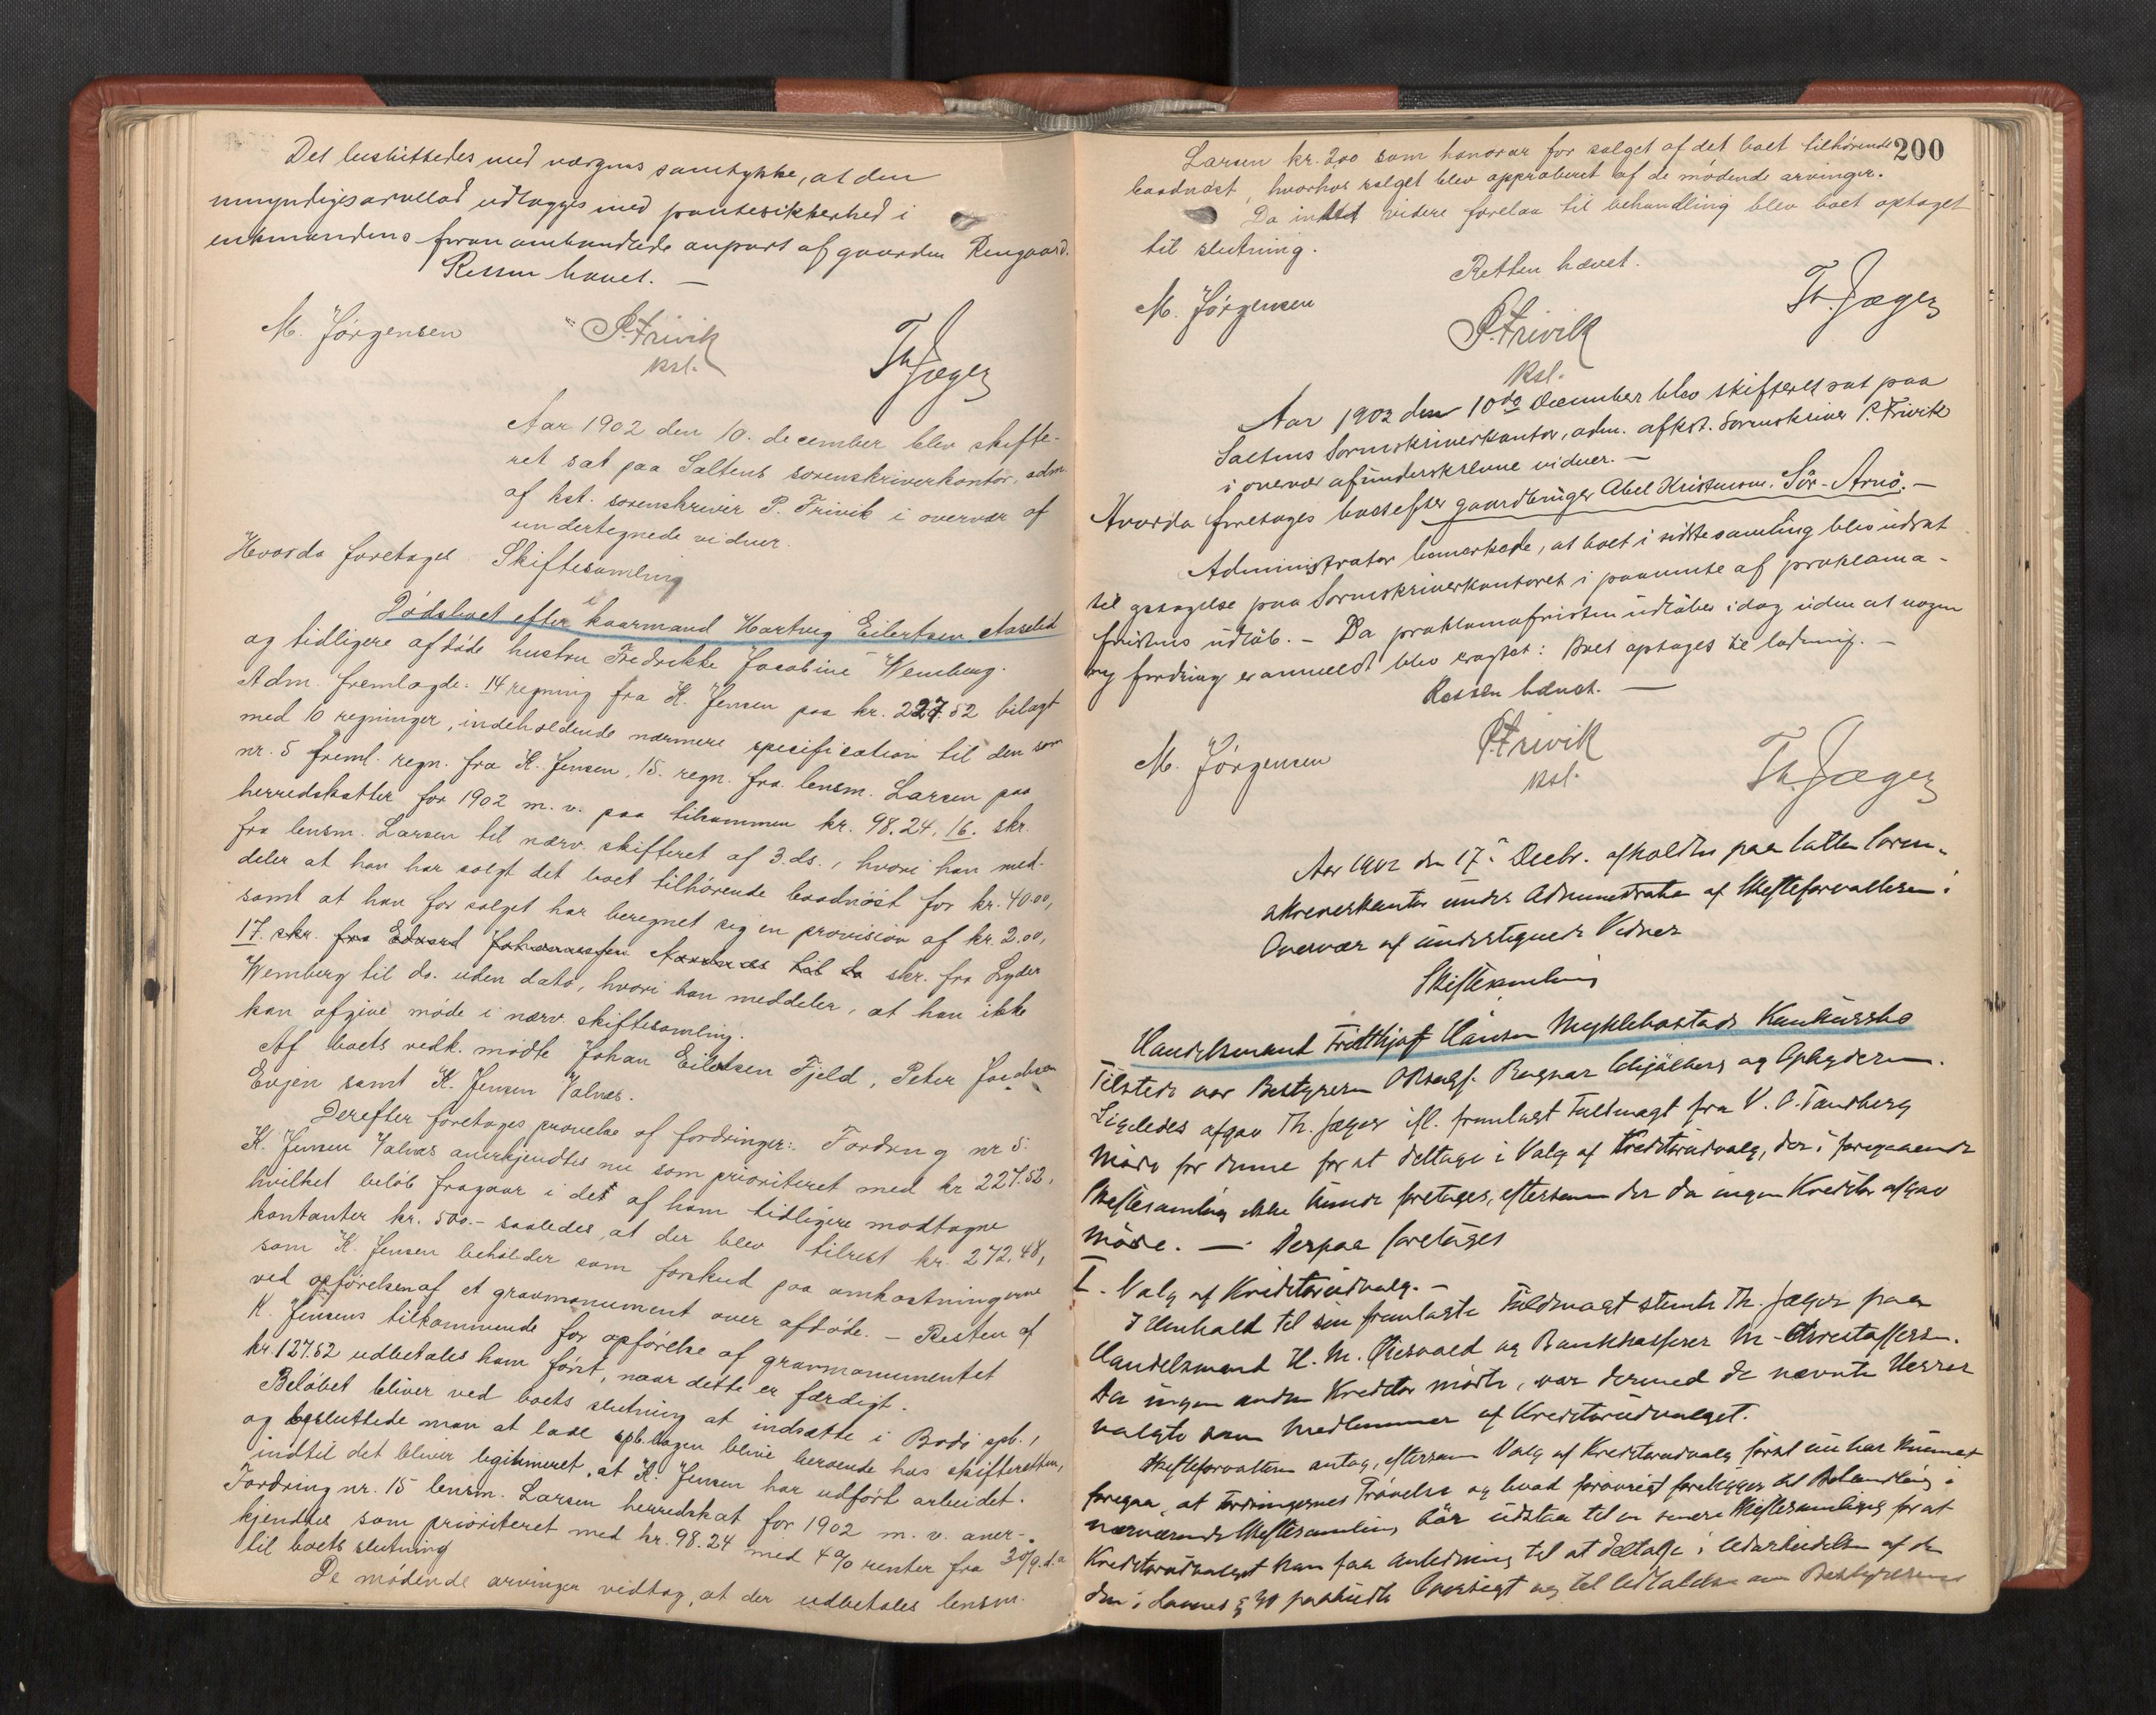 Det besluttedes med værgens samtykke, at den
umyndiges arvellod udlægges med pantesikkerhed i
enkemandens foran omhandlede anpart af gaarden Rengaard.
Retten hævet. —
M. Jörgensen P. Trivik Th Jæger
kst.
Aar 1902 den 10. december blev skifte-
ret sat paa Saltens sorenskriverkontor, adm.
af kst. sorenskriver P. Trivik i overvær af
undertegnede vidner.
Hvorda foretoges Skiftesamling
i
Dödsboet efter kaarmand Hartvig Eilertsen Aaselid
og tidligere afdöde hustru Fredrikke Jacobine Wemberg.
Adm. fremlagde: 14 regning fra K. Jensen paa kr. 227.52 bilagt
med 10 regninger, indeholdende nærmere specification til den som
nr. 5 freml. regn. fra K. Jensen, 15. regn. fra lensm. Larsen paa
herredskatter for 1902 m. v. paa tilsammen kr. 98.24, 16. skr.
fra lensm. Larsen til nærv. skifteret af 3. ds., hvori han med-
deler at han har solgt det boet tilhörende baadnöst for kr. 40.00,
samt at han for salget har beregnet sig en provision af kr. 2.00,
17. skr. fra Edvard Johannessen til skr. fra Lyder
Wemberg til ds. uden dato, hvori han meddeler, at han ikke
kan afgive möde i nærv. skiftesamling.
Af boets vedk. mödte Johan Eilertsen Fjeld, Peter Jacobsen
Evjen samt K. Jensen Valnes.
Derefter foretoges prövelse af fordringer: Fordring nr 5.
K. Jensen Valnes anerkjendtes nu som prioriteret med kr 227.52,
hvilket belöb fragaar i det af ham tidligere modtagne
kontanter kr. 500.- saaledes, at der blev tilrest kr. 272,48,
som K. Jensen beholder som forskud paa omkostningerne
ved opförelsen af et gravmonument over afdöde. — Resten af
K. Jensens tilkommende for opförelse af gravmonumentet
kr. 127.52 udbetales ham först, naar dette er færdigt.
Belöbet bliver ved boets slutning at indsætte i Bodö spb.,
og besluttede man at lade spb.bogen blive beroende hos skifteretten,
indtil det bliver legitimeret, at K. Jensen har udfört arbeidet.
Fordring nr. 15 lensm. Larsen herredskat for 1902 m. v. aner-
kjendtes som prioriteret med kr. 98.24 med 4 % renter fra 30/9. d.a
til boets slutning
De mödende arvinger vedtog, at der udbetales lensm.
200
Larsen kr. 2.00 som honorar for salget af det boet tilhörende
baadnöst, hvorhos salget blev approberet af de mödende arvinger.
Da intet videre forelaa til behandling blev boet optaget
til slutning.
Retten hævet.
M. Jörgensen P. Trivik Th. Jæger
kst.
Aar 1902 den 10de December blev skifteret sat paa
Saltens Sorenskriverkontor, adm. af kst. Sorenskriver P. Trivik
i overvær af underskrevne vidner. —
Hvorda foretoges boet efter gaardbruger Abel Kristensen, Sör-Arnö. —
Administrator bemærkede, at boet i sidste samling blev udsat
til optagelse paa Sorenskriverkontoret i paavente af proklama-
fristens udlöb. — Da proklamafristen udlöber idag uden at nogen
ny fordring er anmeldt blev eragtet: Boet optages til slutning. —
Retten hævet. —
M. Jörgensen P. Trivik Th. Jæger
kst.
Aar 1902 den 17de Decbr. afholdtes paa Salten Soren-
skriverkontor under Administration af Skifteforvalteren i
Overvær af undertegnede Vidner
Skiftesamling
i
Handelsmand Fridthjof Hansen Myklebostads Konkursbo
Tilstede var Bestyreren Ragnar Schjölberg og Opbyderen.
Ligeledes afgav Th. Jæger ifl. fremlagt Fuldmagt fra V. O. Tandberg
Möde for denne for at deltage i Valg af Kreditorudvalg, der i foregaaende
Skiftesamling ikke kunde foretages, eftersom der da ingen Kreditor afgav
Möde. — Derpaa foretoges
I. Valg af Kreditorudvalg. —
I Henhold til sin fremlagte Fuldmagt stemte Th. Jæger paa
Handelsmand H. M. og Bankkasserer M.
Da ingen anden Kreditor mödte, var dermed de nævnte Herrer
valgte som Medlemmer af Kreditorudvalget.
Skifteforvalteren antog, eftersom Valg af Kreditorudvalg först nu har kunnet
foregaa, at Fordringernes Prövelse og hvad forövrigt foreligger til Behandling i
nærværende Skiftesamling bör udstaa til en senere Skiftesamling for at
Kreditorudvalget kan faa Anledning til at deltage i Udarbeidelsen af den
den i Lovens § 90 paabudte Oversigt og til Udtalelse om Bestyrerens